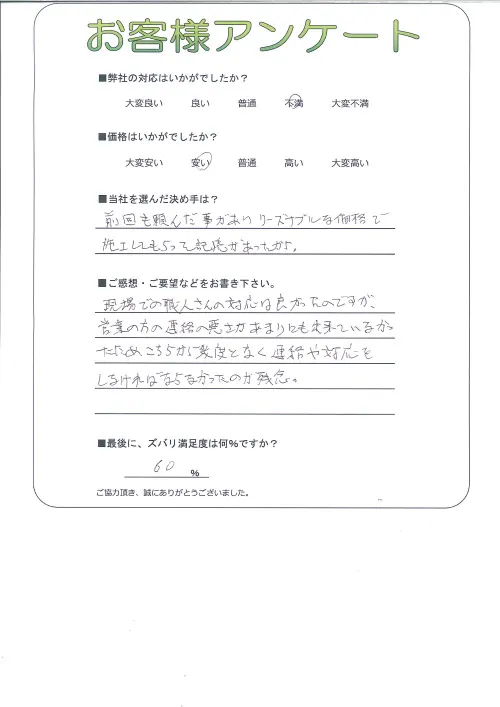 お客様アンケート
■弊社の対応はいかがでしたか？
大変良い 良い 普通 不満 大変不満
■価格はいかがでしたか？
大変安い 安い 普通 高い 大変高い
■当社を選んだ決め手は？
前回も頼んだ事がありリーズナブルな価格で
施工してもらって記憶があったから。
■ご感想・ご要望などをお書き下さい。
現場での職人さんの対応は良かったのですが、
営業の方の連絡の悪さがあまりにも
ためこちらから幾度となく連絡や対応を
しなければならなかったのが残念。
■最後に、ズバリ満足度は何％ですか？
60 ％
ご協力頂き、誠にありがとうございました。